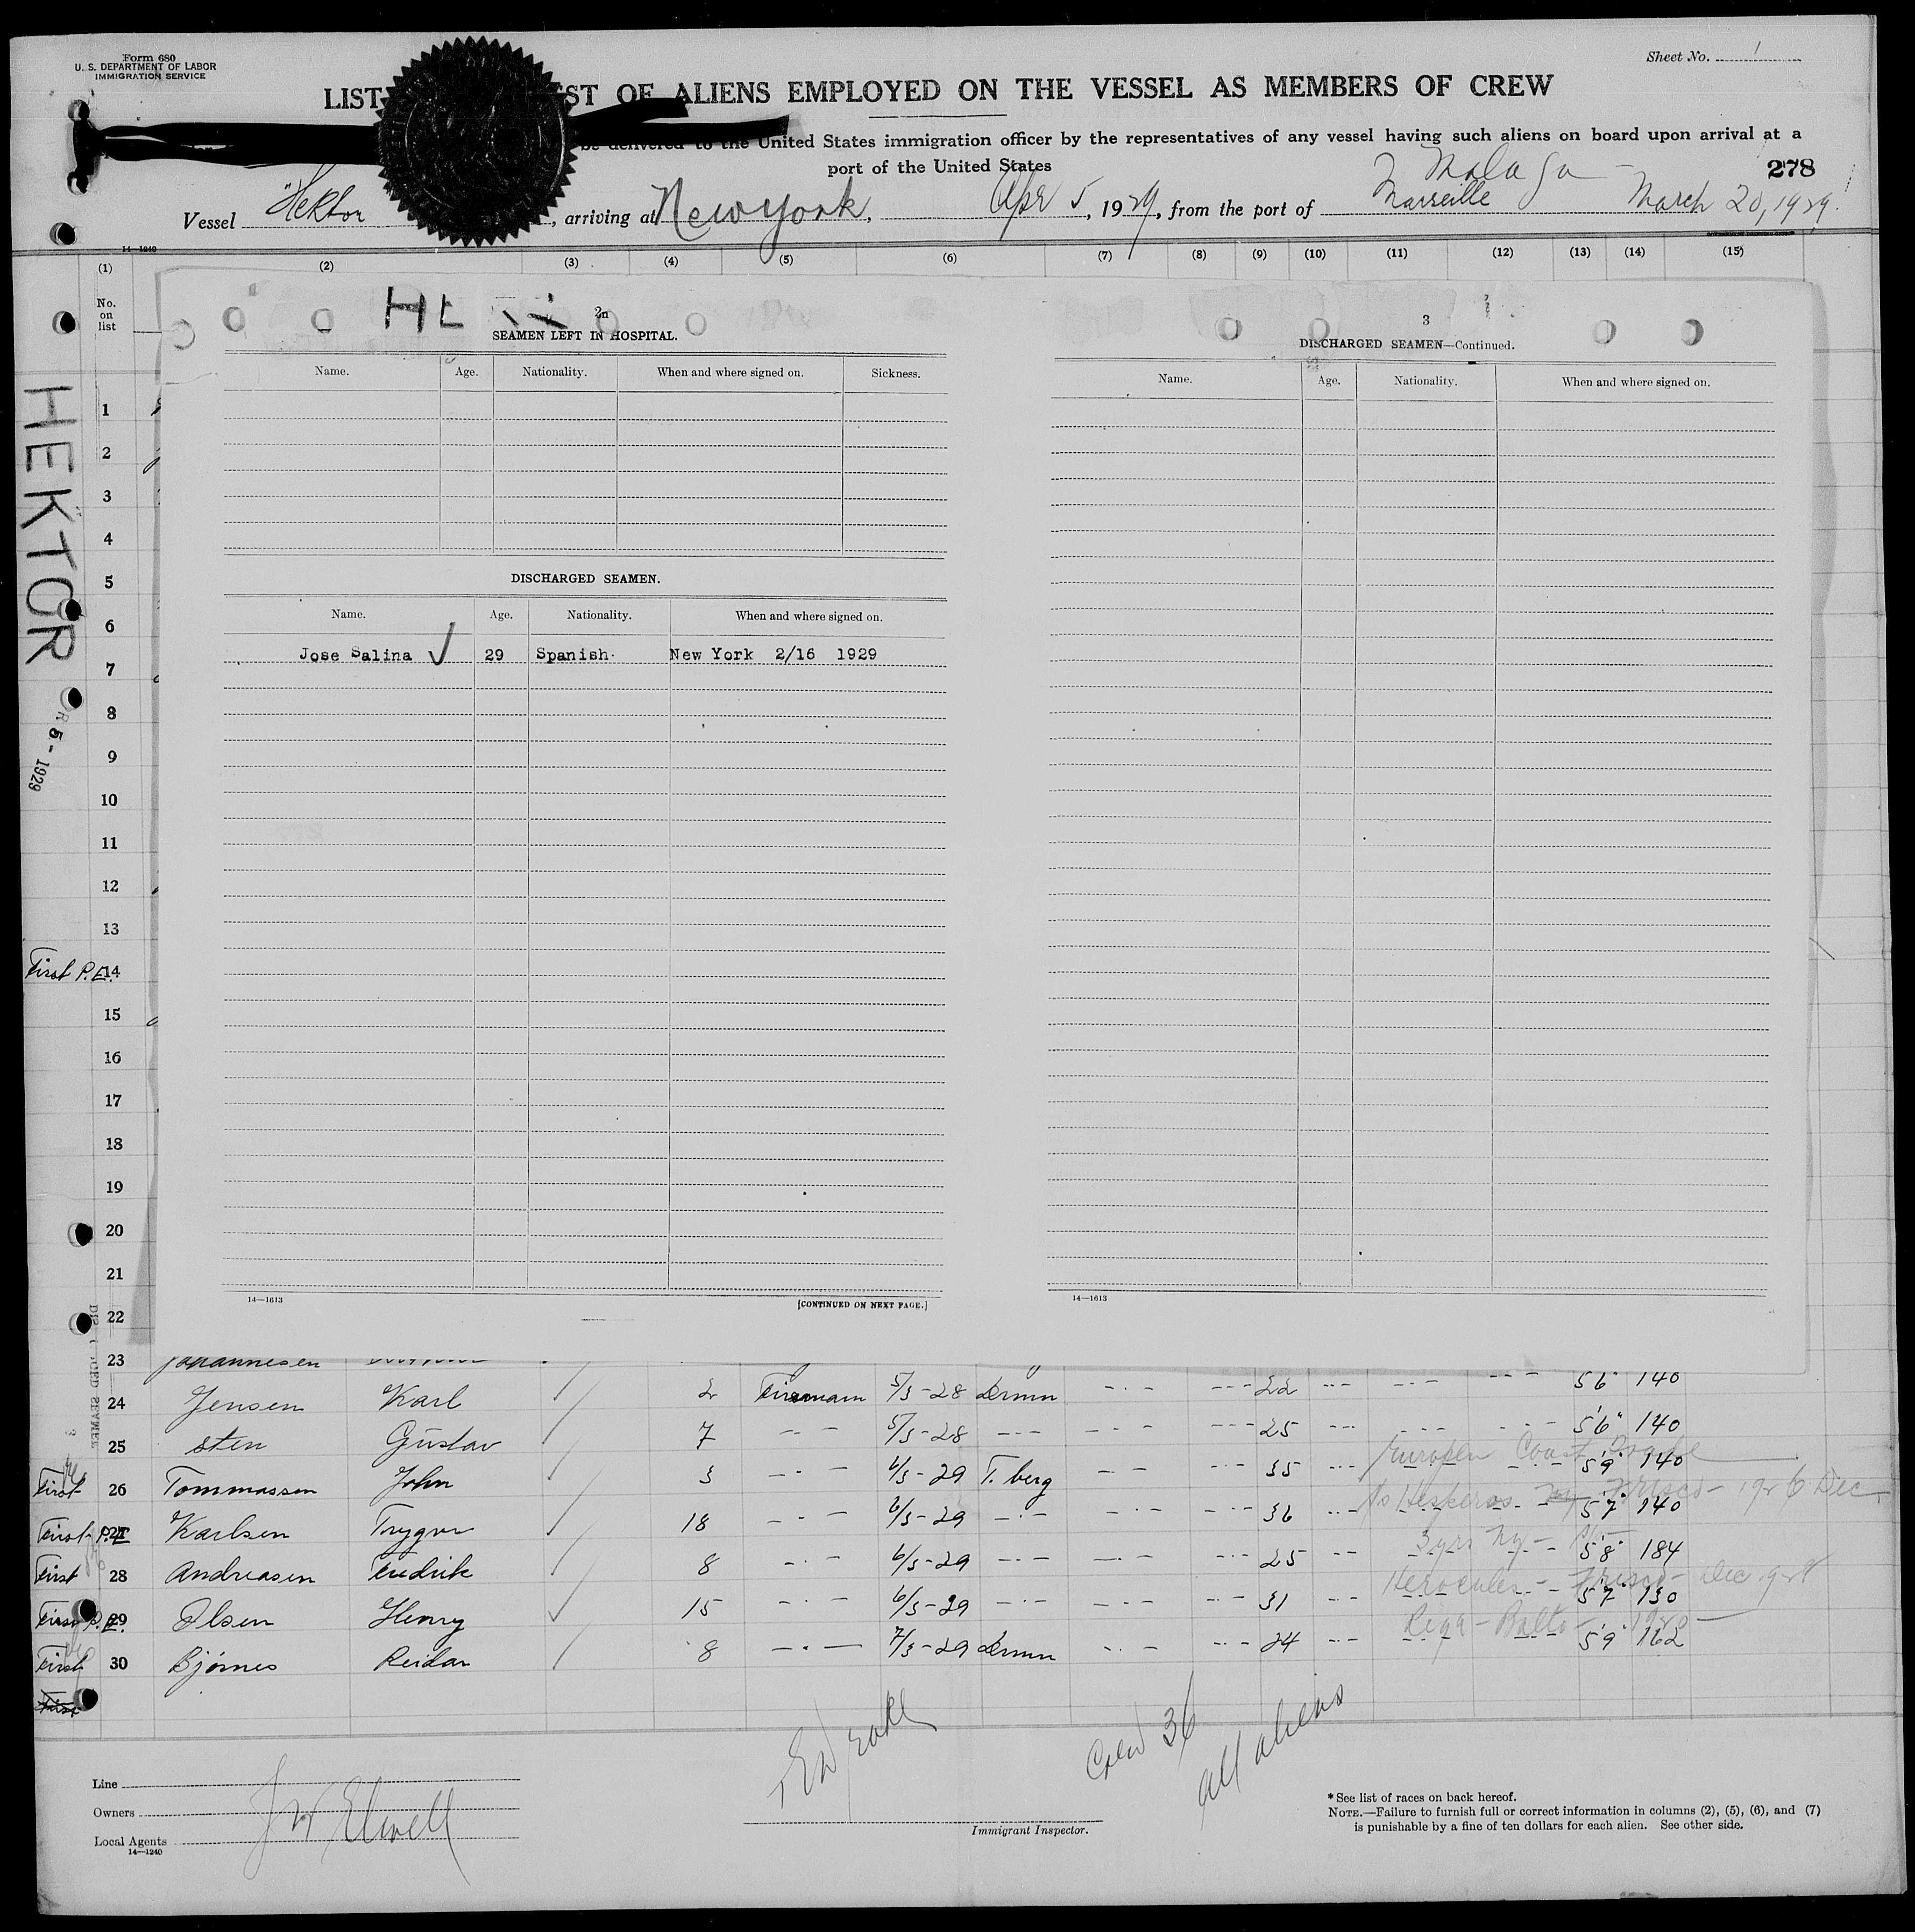 Form 680
U. S. DEPARTMENT OF LABOR
IMMIGRATION SERVICE
Sheet No. 1
LIST ST OF ALIENS EMPLOYED ON THE VESSEL AS MEMBERS OF CREW
be delivered to the United States immigration officer by the representatives of any vessel having such aliens on board upon arrival at a
port of the United States
278
Malaga
Vessel "Hektor , arriving at New York, Apr 5, 1929, from the port of Marseille March 20, 1929.
14—1240
(1) (2) (3) (4) (5) (6) (7) (8) (9) (10) (11) (12) (13) (14) (15)
No. on list
HEKTOR
R 5 - 1929
HL
SEAMEN LEFT IN HOSPITAL.
Name. Age. Nationality. When and where signed on. Sickness.
DISCHARGED SEAMEN.
Name. Age. Nationality. When and where signed on.
Jose Salina ✓ 29 Spanish. New York 2/16 1929
14—1613
[CONTINUED ON NEXT PAGE.]
3
DISCHARGED SEAMEN—Continued.
Name. Age. Nationality. When and where signed on.
14—1613
1
2
3
4
5
6
7
8
9
10
11
12
13
First P.E. 14
15
16
17
18
19
20
21
22
23 Johannesen
24 Jensen Karl 2 Fireman 5/3-28 Drmn 22 5'6" 140
25 Sten Gustav 7 5/3-28 25 5'6" 140
First 26 Tommassen John 3 6/3-29 T. berg 35 5'9" 140
First P.E. 27 Karlsen Trygve 18 6/3-29 36 5'7" 140
First 28 Andreasen Fredrik 8 6/3-29 25 5'8" 184
First P.E. 29 Olsen Henry 15 6/3-29 31 5'7" 130
First 30 Bjørnes Reidar 8 7/3-29 Drmn 24 5'9" 162
First
Crew 36
all aliens
Line
Owners
Local Agents
J W Elwell
14—1240
Immigrant Inspector.
* See list of races on back hereof.
NOTE.—Failure to furnish full or correct information in columns (2), (5), (6), and (7)
is punishable by a fine of ten dollars for each alien. See other side.